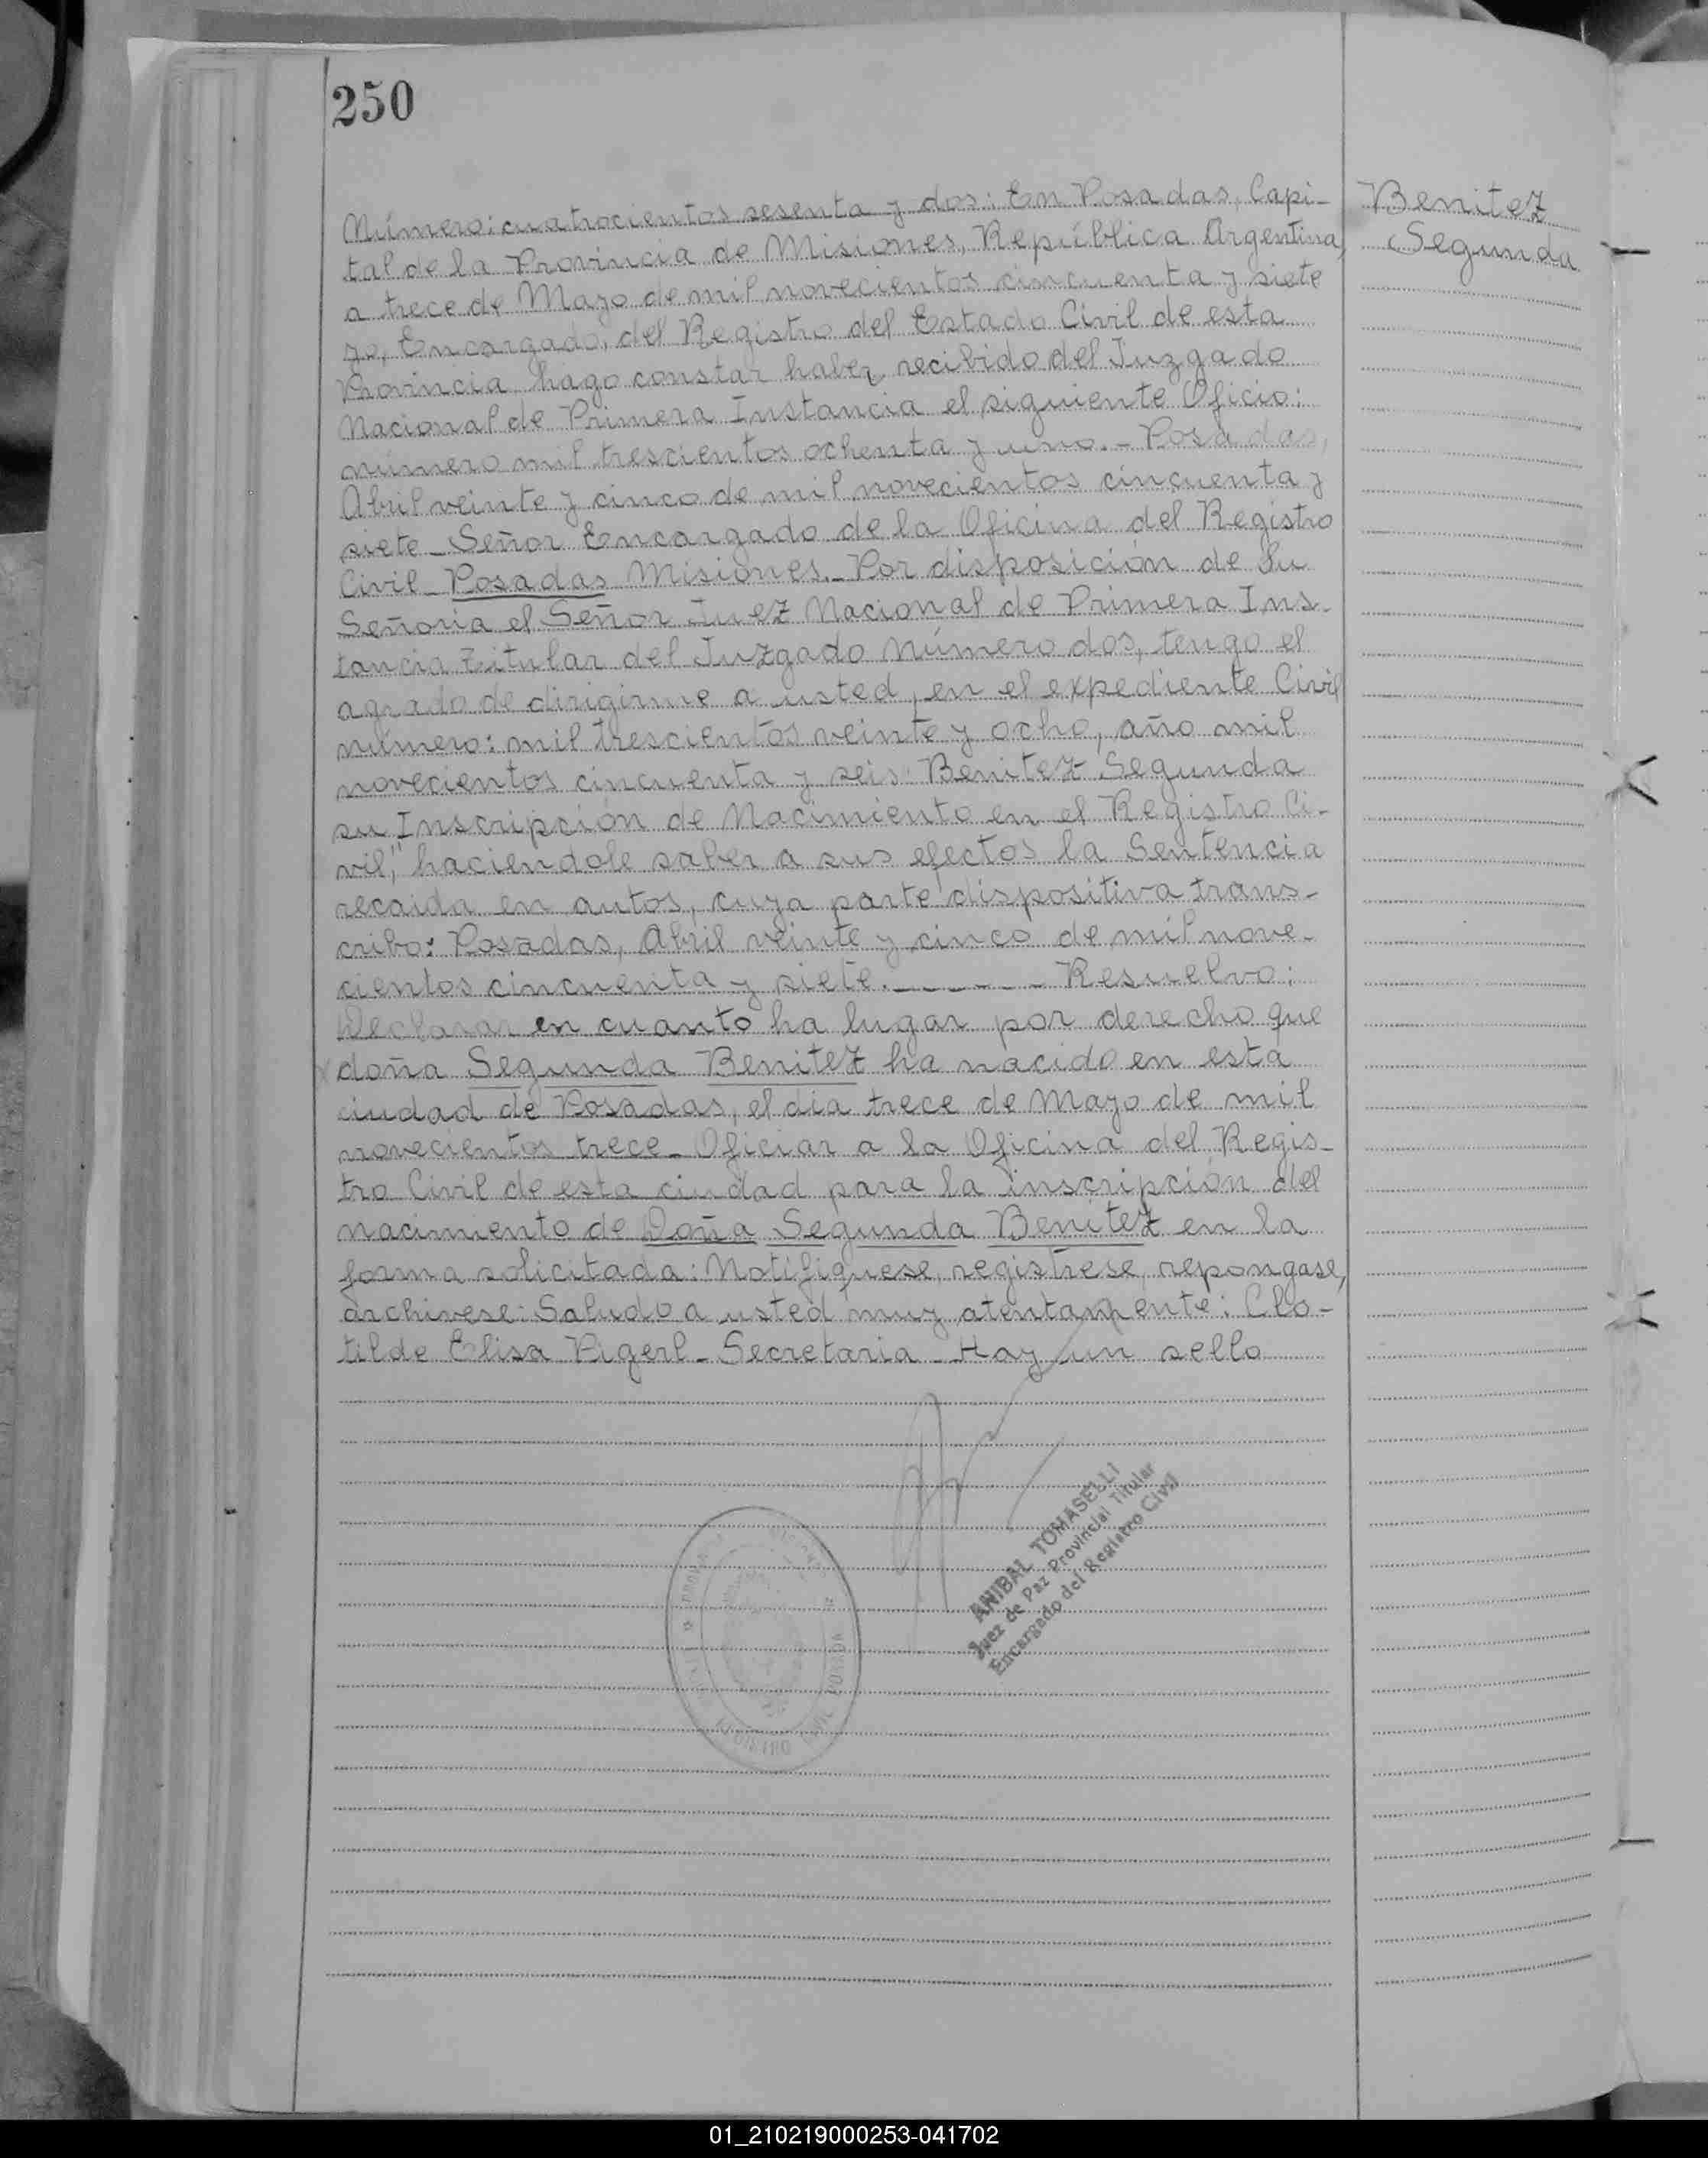 250
Benitez
Segunda
Número: cuatrocientos sesenta y dos: En Posadas, Capi-
tal de la Provincia de Misiones, República Argentina,
a trece de Mayo de mil novecientos cincuenta y siete
yo, Encargado, del Registro del Estado Civil de esta
Provincia hago constar haber recibido del Juzgado
Nacional de Primera Instancia el siguiente Oficio:
número mil trescientos ochenta y uno.- Posadas,
Abril veinte y cinco de mil novecientos cincuenta y
siete - Señor Encargado de la Oficina del Registro
Civil - Posadas Misiones.- Por disposición de Su
Señoria el Señor Juez Nacional de Primera Ins-
tancia Titular del Juzgado Número dos, tengo el
agrado de dirigirme a usted, en el expediente Civil
número: mil trescientos veinte y ocho, año mil
novecientos cincuenta y seis: Benitez Segunda
su Inscripción de Nacimiento en el Registro Ci-
vil", haciendole saber a sus efectos la Sentencia
recaida en autos, cuya parte dispositiva trans-
cribo: Posadas, Abril veinte y cinco de mil nove-
cientos cincuenta y siete.------ Resuelvo:
Declarar en cuanto ha lugar por derecho que
doña Segunda Benitez ha nacido en esta
ciudad de Posadas, el dia trece de Mayo de mil
novecientos trece - Oficiar a la Oficina del Regis-
tro Civil de esta ciudad para la inscripción del
nacimiento de Doña Segunda Benitez en la
forma solicitada: Notifiquese, registrese, repongase,
archivese: Saludo a usted muy atentamente: Clo-
tilde Elisa Pigerl - Secretaria - Hay un sello
ANIBAL TOMASELLI
Juez de Paz Provincial Titular
Encargado del Registro Civil
01_210219000253-041702